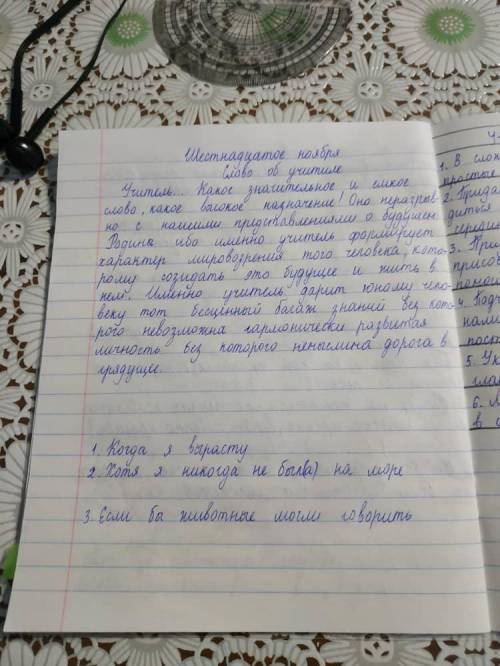 Шестнадцатое ноября
Слово об учителе
Учитель... Какое значительное и ёмкое
слово, какое высокое назначение! Оно неразрыв-
но с нашими представлениями о будущем
Родины ибо именно учитель формирует
характер мировоззрения того человека, кото-
рому созидать это будущее и жить в
нем. Именно учитель дарит юному чело-
веку тот бесценный багаж знаний без кото-
рого невозможна гармонически развитая
личность без которого немыслима дорога в
грядущее.
1. Когда я вырасту
2. Хотя я никогда не был(а) на море
3. Если бы животные могли говорить
1. В слож
простые
2. Прида
диться
середин
3. При
присое
помощ
4. Подч
нали
пост
5. Ук
глав
6. 
в с